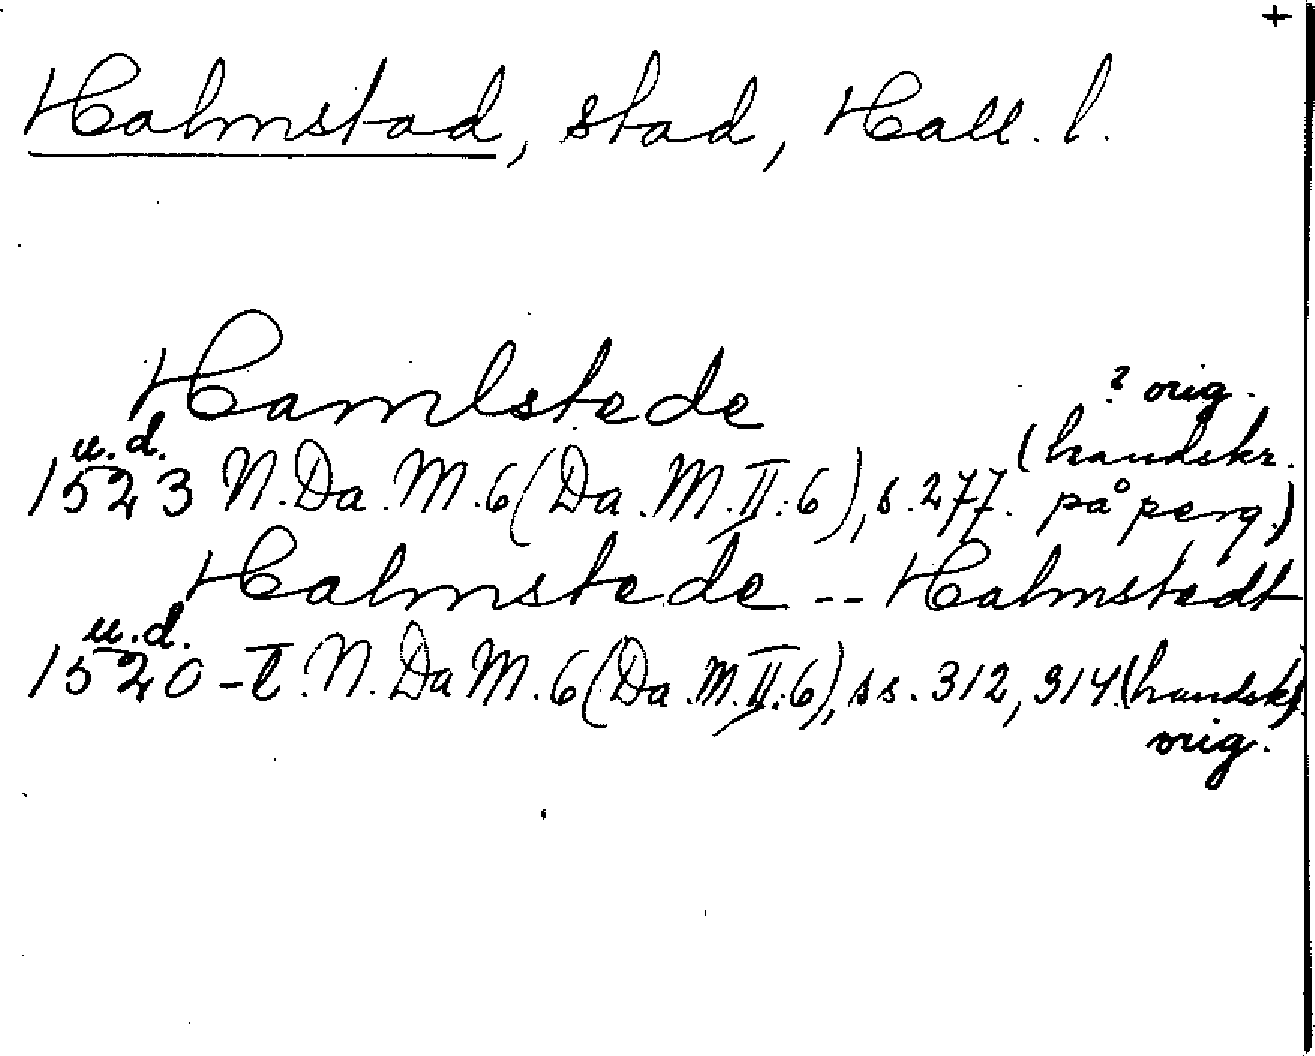 +
Halmstad, stad, Hall. l.
Hamlstede
? orig.
u.d.
(handskr.
1523 N. Da. M. 6 (Da. M. II. 6), s. 277. på perg.)
Halmstede -- Halmstedt
u.d.
1520-t. N. Da M. 6 (Da. M. II. 6), ss. 312, 314. (handskr.)
orig.